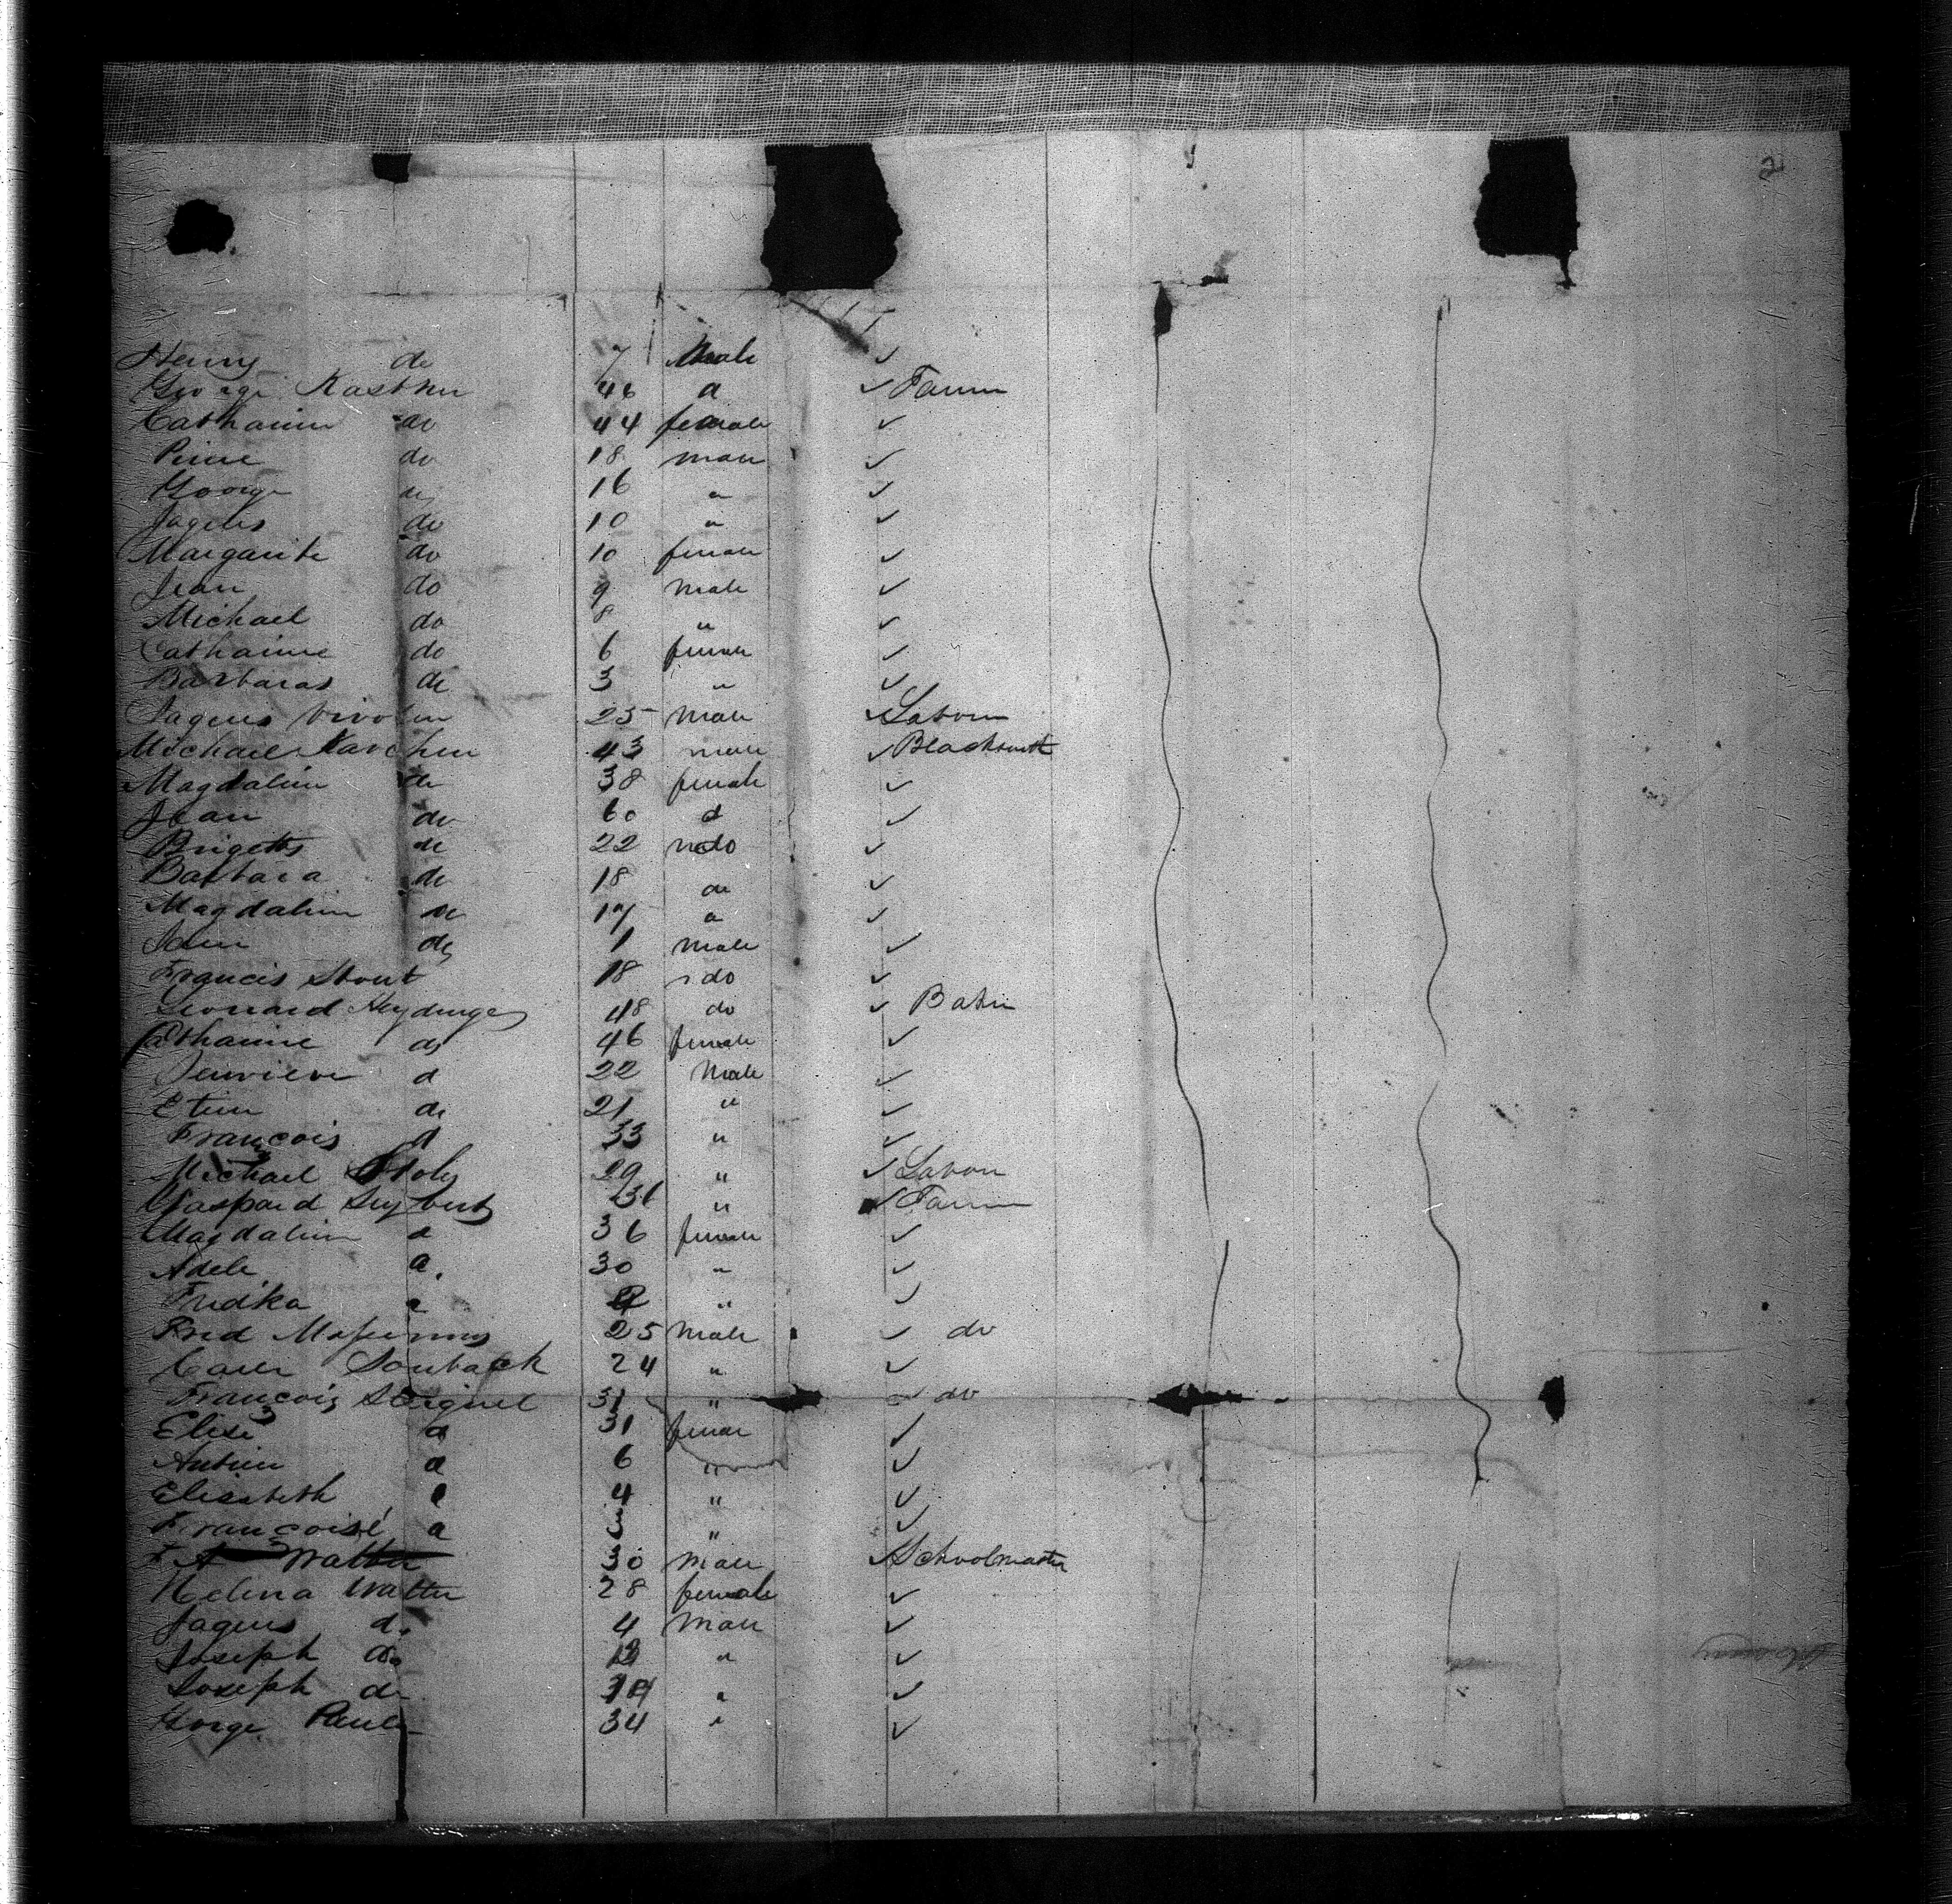 2
Henry do 7 Male
George Kastner 46 d Farmer
Catharine do 44 female
Pierre do 18 male
George do 16 "
Jaques do 10 "
Margarite do 10 female
Jean do 9 male
Michael do 8 "
Catharine do 6 female
Barbaras do 3 "
Jaques 25 male Labour
Michael Karcher 43 male Blacksmith
Magdaline do 38 female
Jean do 60 d
Brigette do 22 do
Barbara do 18 do
Magdaline do 17 "
Jean do 1 male
Francis Stout 18 do
Leonard Heydinger 48 do Baker
Catharine do 46 female
Genevieve d 22 Male
Etien do 21 "
François d 33 "
Michael Stoly 29 " Labour
Gaspard Seybert 36 " Farmer
Magdaline d 36 female
Adele d. 30 "
Fredka d "
Fred 25 male do
Souback 24 "
François Steiguel 31 " do
Elise d 31 female
Antien d 6 "
Elisabeth d 4 "
Françoise d "
Walter 30 male Schoolmaster
Helena Walter 28 female
Jaques d. 4 Male
Joseph do "
Joseph do "
George Pauly 34 "